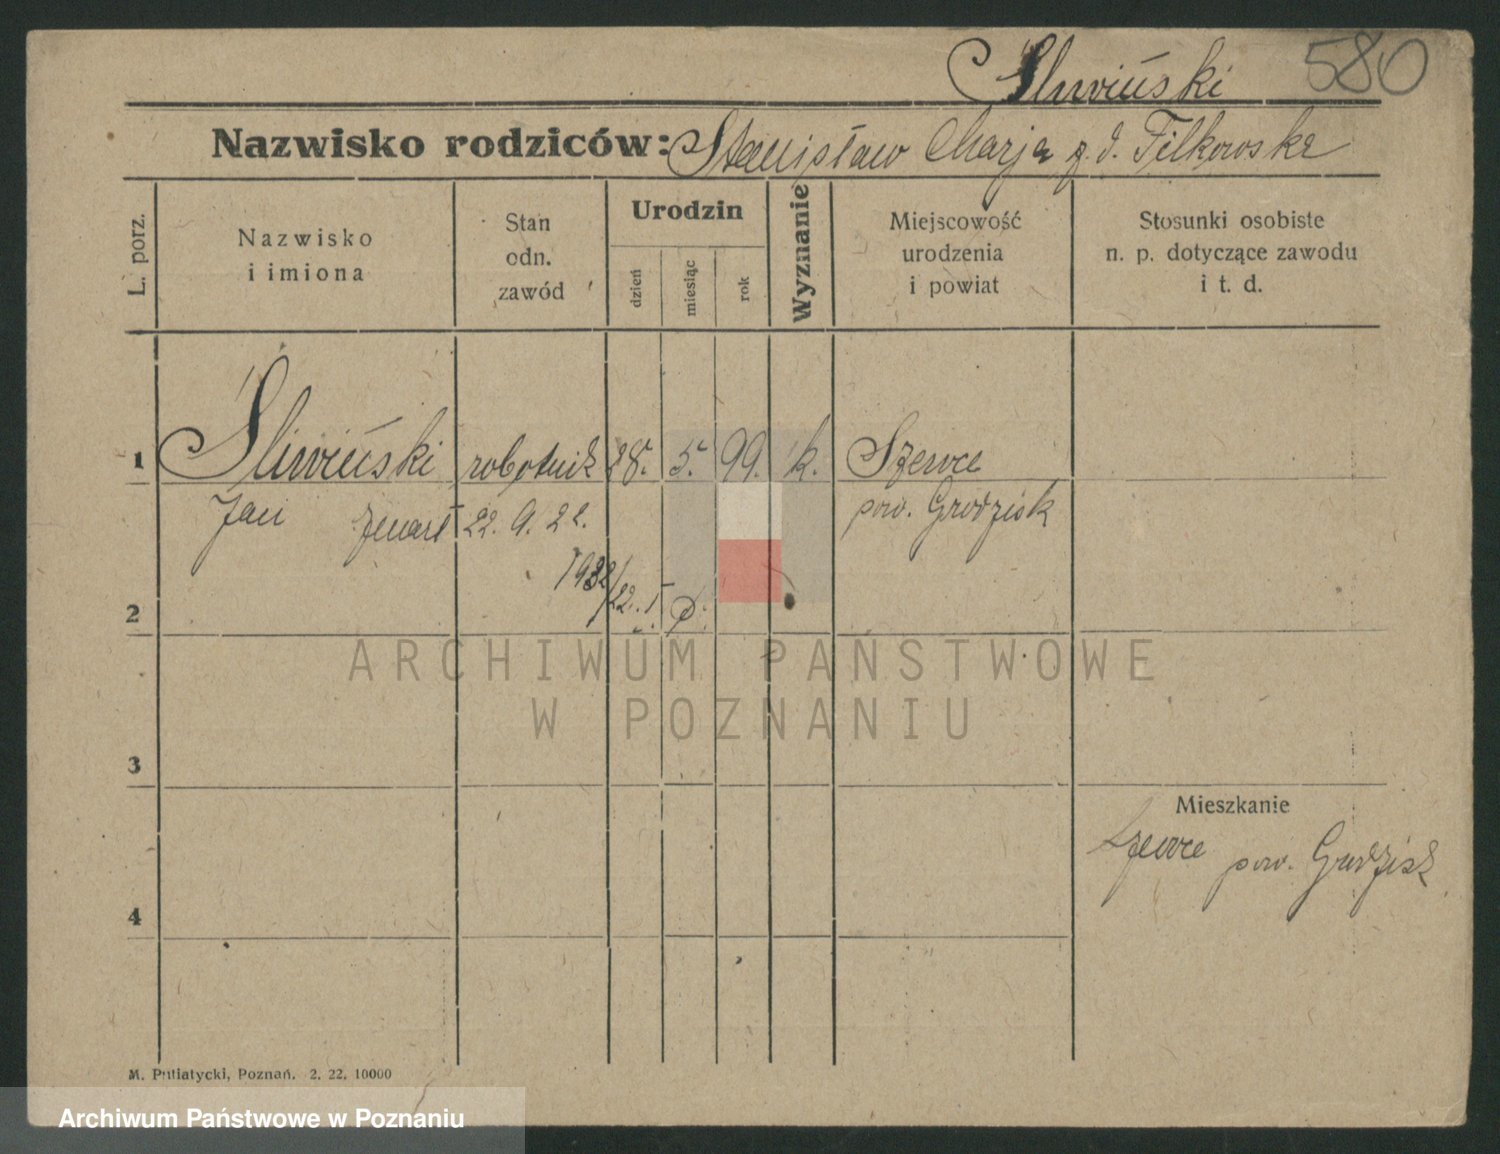 Śliwiński 580
Nazwisko rodziców: Stanisław Marja z d. Filkowska
L. porz.
Nazwisko
i imiona
Stan
odn.
zawód
Urodzin
dzień
miesiąc
rok
Wyznanie
Miejscowość
urodzenia
i powiat
Stosunki osobiste
n. p. dotyczące zawodu
i t. d.
1 Śliwiński robotnik 28. 5. 99. k. Szewce
Jan 22. 9. 22. pow. Grodzisk
1932/22. I
2
3
Mieszkanie
Szewce pow. Grodzisk
4
M. Putiatycki, Poznań. 2. 22. 10000
ARCHIWUM PAŃSTWOWE
W POZNANIU
Archiwum Państwowe w Poznaniu